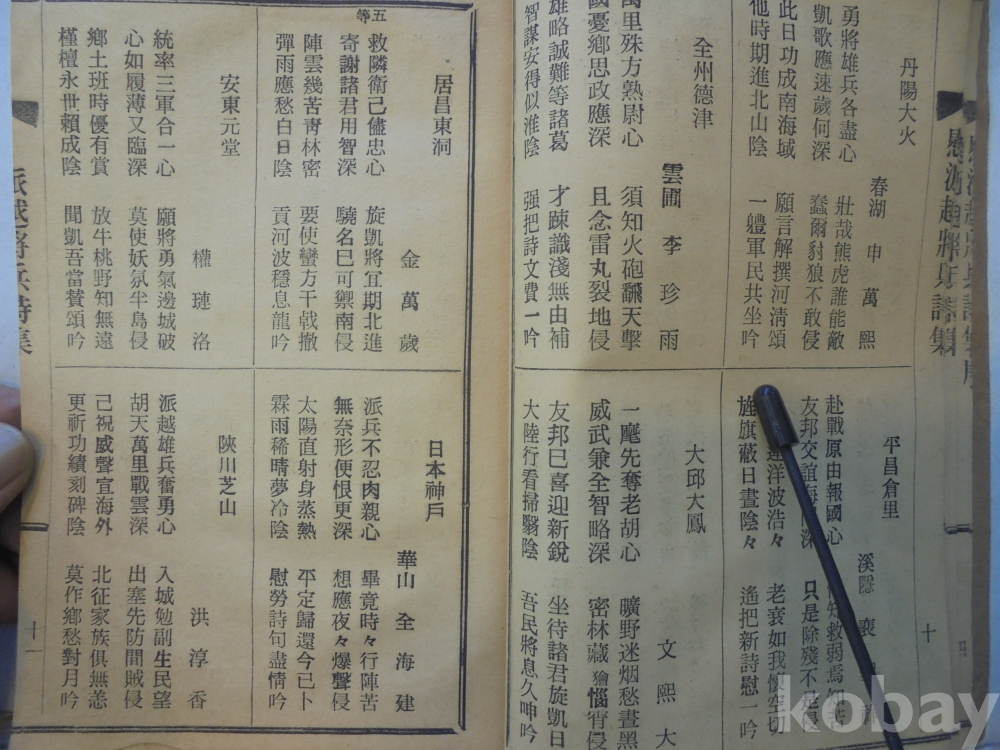 慰派越將兵詩集
十
丹陽大火
春湖 申萬熙
勇將雄兵各盡心 壯哉熊虎誰能敵
凱歌應速歲何深 蠢爾豹狼不敢侵
此日功成南海域 願言解撰河淸頌
他時期進北山陰 一軆軍民共坐吟
全州德津
雲圃 李珍雨
萬里殊方熟尉心 須知火砲飜天擊
國憂鄉思政應深 且念雷丸裂地侵
雄略誠難等諸葛 才踈識淺無由補
智謀安得似淮陰 强把詩文費一吟
平昌倉里
溪隱 裵
赴戰原由報國心 知救弱焉知苦
友邦交誼海 深 只是除殘不是侵
洋波浩々 老衰如我懷空切
旌旗蔽日晝陰々 遙把新詩慰一吟
大邱大鳳
文熙大
一麾先奪老胡心 曠野迷烟愁晝黑
威武兼全智略深 密林藏獪惱宵侵
友邦巳喜迎新銳 坐待諸君旋凱日
大陸行看掃翳陰 吾民將息久呻吟
居昌東洞
金萬歲
五等
救隣衛己儘忠心 旋凱將宜期北進
寄謝諸君用智深 驍名巳可禦南侵
陣雲幾苦靑林密 要使蠻方干戟撤
彈雨應愁白日陰 貢河波穩息龍吟
安東元堂
權璉洛
統率三軍合一心 願將勇氣邊城破
心如履薄又臨深 莫使妖氛半島侵
鄉土班時優有賞 放牛桃野知無遠
槿檀永世賴成陰 聞凱吾當賛頌吟
日本神戶
華山 全海建
派兵不忍肉親心 畢竟時々行陣苦
無奈形便恨更深 想應夜々爆聲侵
太陽直射身蒸熱 平定歸還今已卜
霖雨稀晴夢冷陰 慰勞詩句盡情吟
陜川芝山
洪淳香
派越雄兵奮勇心 入城勉副生民望
胡天萬里戰雲深 出塞先防間賊侵
己祝威聲宜海外 北征家族俱無恙
更祈功績刻碑陰 莫作鄉愁對月吟
派越將兵詩集
十一
kobay